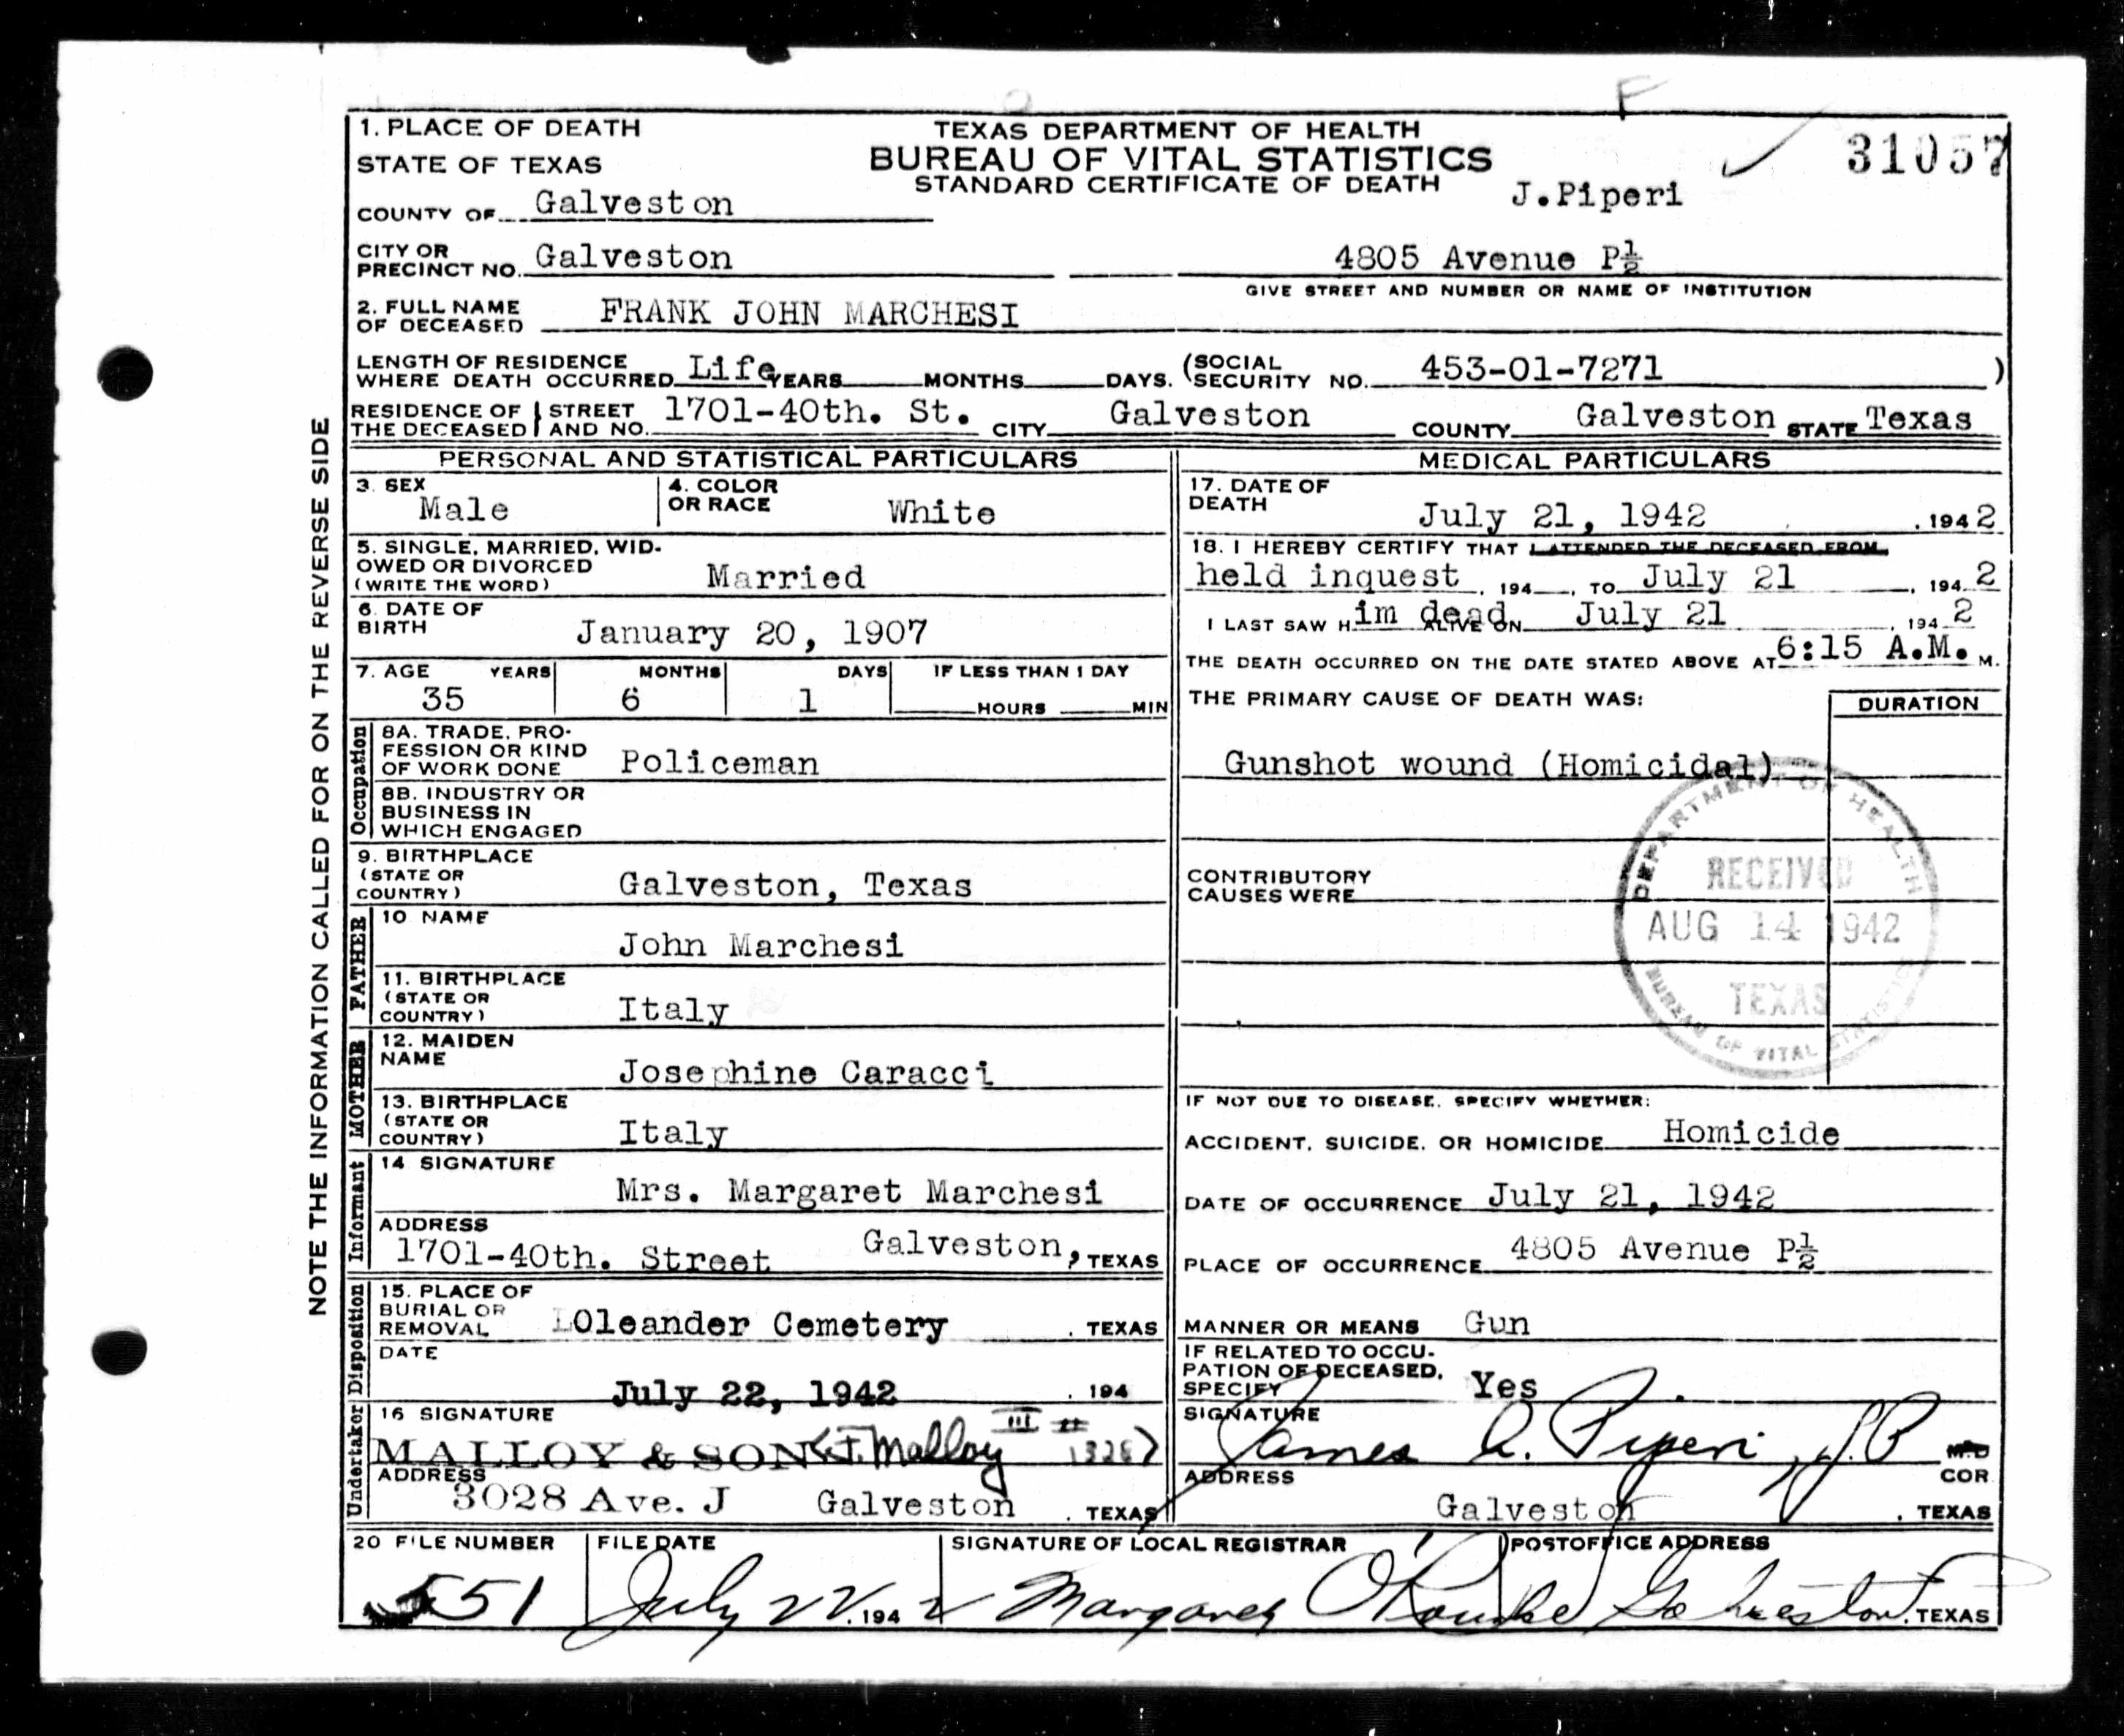 F
1. PLACE OF DEATH
STATE OF TEXAS
COUNTY OF Galveston
TEXAS DEPARTMENT OF HEALTH
BUREAU OF VITAL STATISTICS
STANDARD CERTIFICATE OF DEATH
31057
J.Piperi
CITY OR PRECINCT NO. Galveston
4805 Avenue P½
GIVE STREET AND NUMBER OR NAME OF INSTITUTION
2. FULL NAME OF DECEASED FRANK JOHN MARCHESI
LENGTH OF RESIDENCE WHERE DEATH OCCURRED Life YEARS MONTHS DAYS. (SOCIAL SECURITY NO. 453-01-7271 )
RESIDENCE OF THE DECEASED STREET AND NO. 1701-40th. St. CITY Galveston COUNTY Galveston STATE Texas
PERSONAL AND STATISTICAL PARTICULARS
3. SEX Male
4. COLOR OR RACE White
5. SINGLE, MARRIED, WIDOWED OR DIVORCED (WRITE THE WORD) Married
6. DATE OF BIRTH January 20, 1907
7. AGE YEARS MONTHS DAYS IF LESS THAN 1 DAY
35 6 1 HOURS MIN
Occupation
8A. TRADE, PROFESSION OR KIND OF WORK DONE Policeman
8B. INDUSTRY OR BUSINESS IN WHICH ENGAGED
9. BIRTHPLACE (STATE OR COUNTRY) Galveston, Texas
FATHER
10 NAME John Marchesi
11. BIRTHPLACE (STATE OR COUNTRY) Italy
MOTHER
12. MAIDEN NAME Josephine Caracci
13. BIRTHPLACE (STATE OR COUNTRY) Italy
Informant
14 SIGNATURE Mrs. Margaret Marchesi
ADDRESS 1701-40th. Street Galveston, TEXAS
Disposition
15. PLACE OF BURIAL OR REMOVAL LOleander Cemetery . TEXAS
DATE July 22, 1942 . 194
Undertaker
16 SIGNATURE
MALLOY & SON (J. Malloy III 1326)
ADDRESS 3028 Ave. J Galveston . TEXAS
MEDICAL PARTICULARS
17. DATE OF DEATH July 21, 1942 , 1942
18. I HEREBY CERTIFY THAT I ATTENDED THE DECEASED FROM
held inquest , 194 , TO July 21 , 1942
I LAST SAW Him dead ALIVE ON July 21 , 1942
THE DEATH OCCURRED ON THE DATE STATED ABOVE AT 6:15 A.M. M.
THE PRIMARY CAUSE OF DEATH WAS: DURATION
Gunshot wound (Homicidal)
CONTRIBUTORY CAUSES WERE
DEPARTMENT OF HEALTH
RECEIVED
AUG 14 1942
TEXAS
BUREAU OF VITAL STATISTICS
IF NOT DUE TO DISEASE, SPECIFY WHETHER:
ACCIDENT, SUICIDE, OR HOMICIDE Homicide
DATE OF OCCURRENCE July 21, 1942
PLACE OF OCCURRENCE 4805 Avenue P½
MANNER OR MEANS Gun
IF RELATED TO OCCUPATION OF DECEASED, SPECIFY Yes
SIGNATURE James A. Piperi, J.P. M.D
COR
ADDRESS Galveston . TEXAS
20 FILE NUMBER FILE DATE SIGNATURE OF LOCAL REGISTRAR POSTOFFICE ADDRESS
551 July 22, 1942 Margaret O'Rourke Galveston, TEXAS
NOTE THE INFORMATION CALLED FOR ON THE REVERSE SIDE